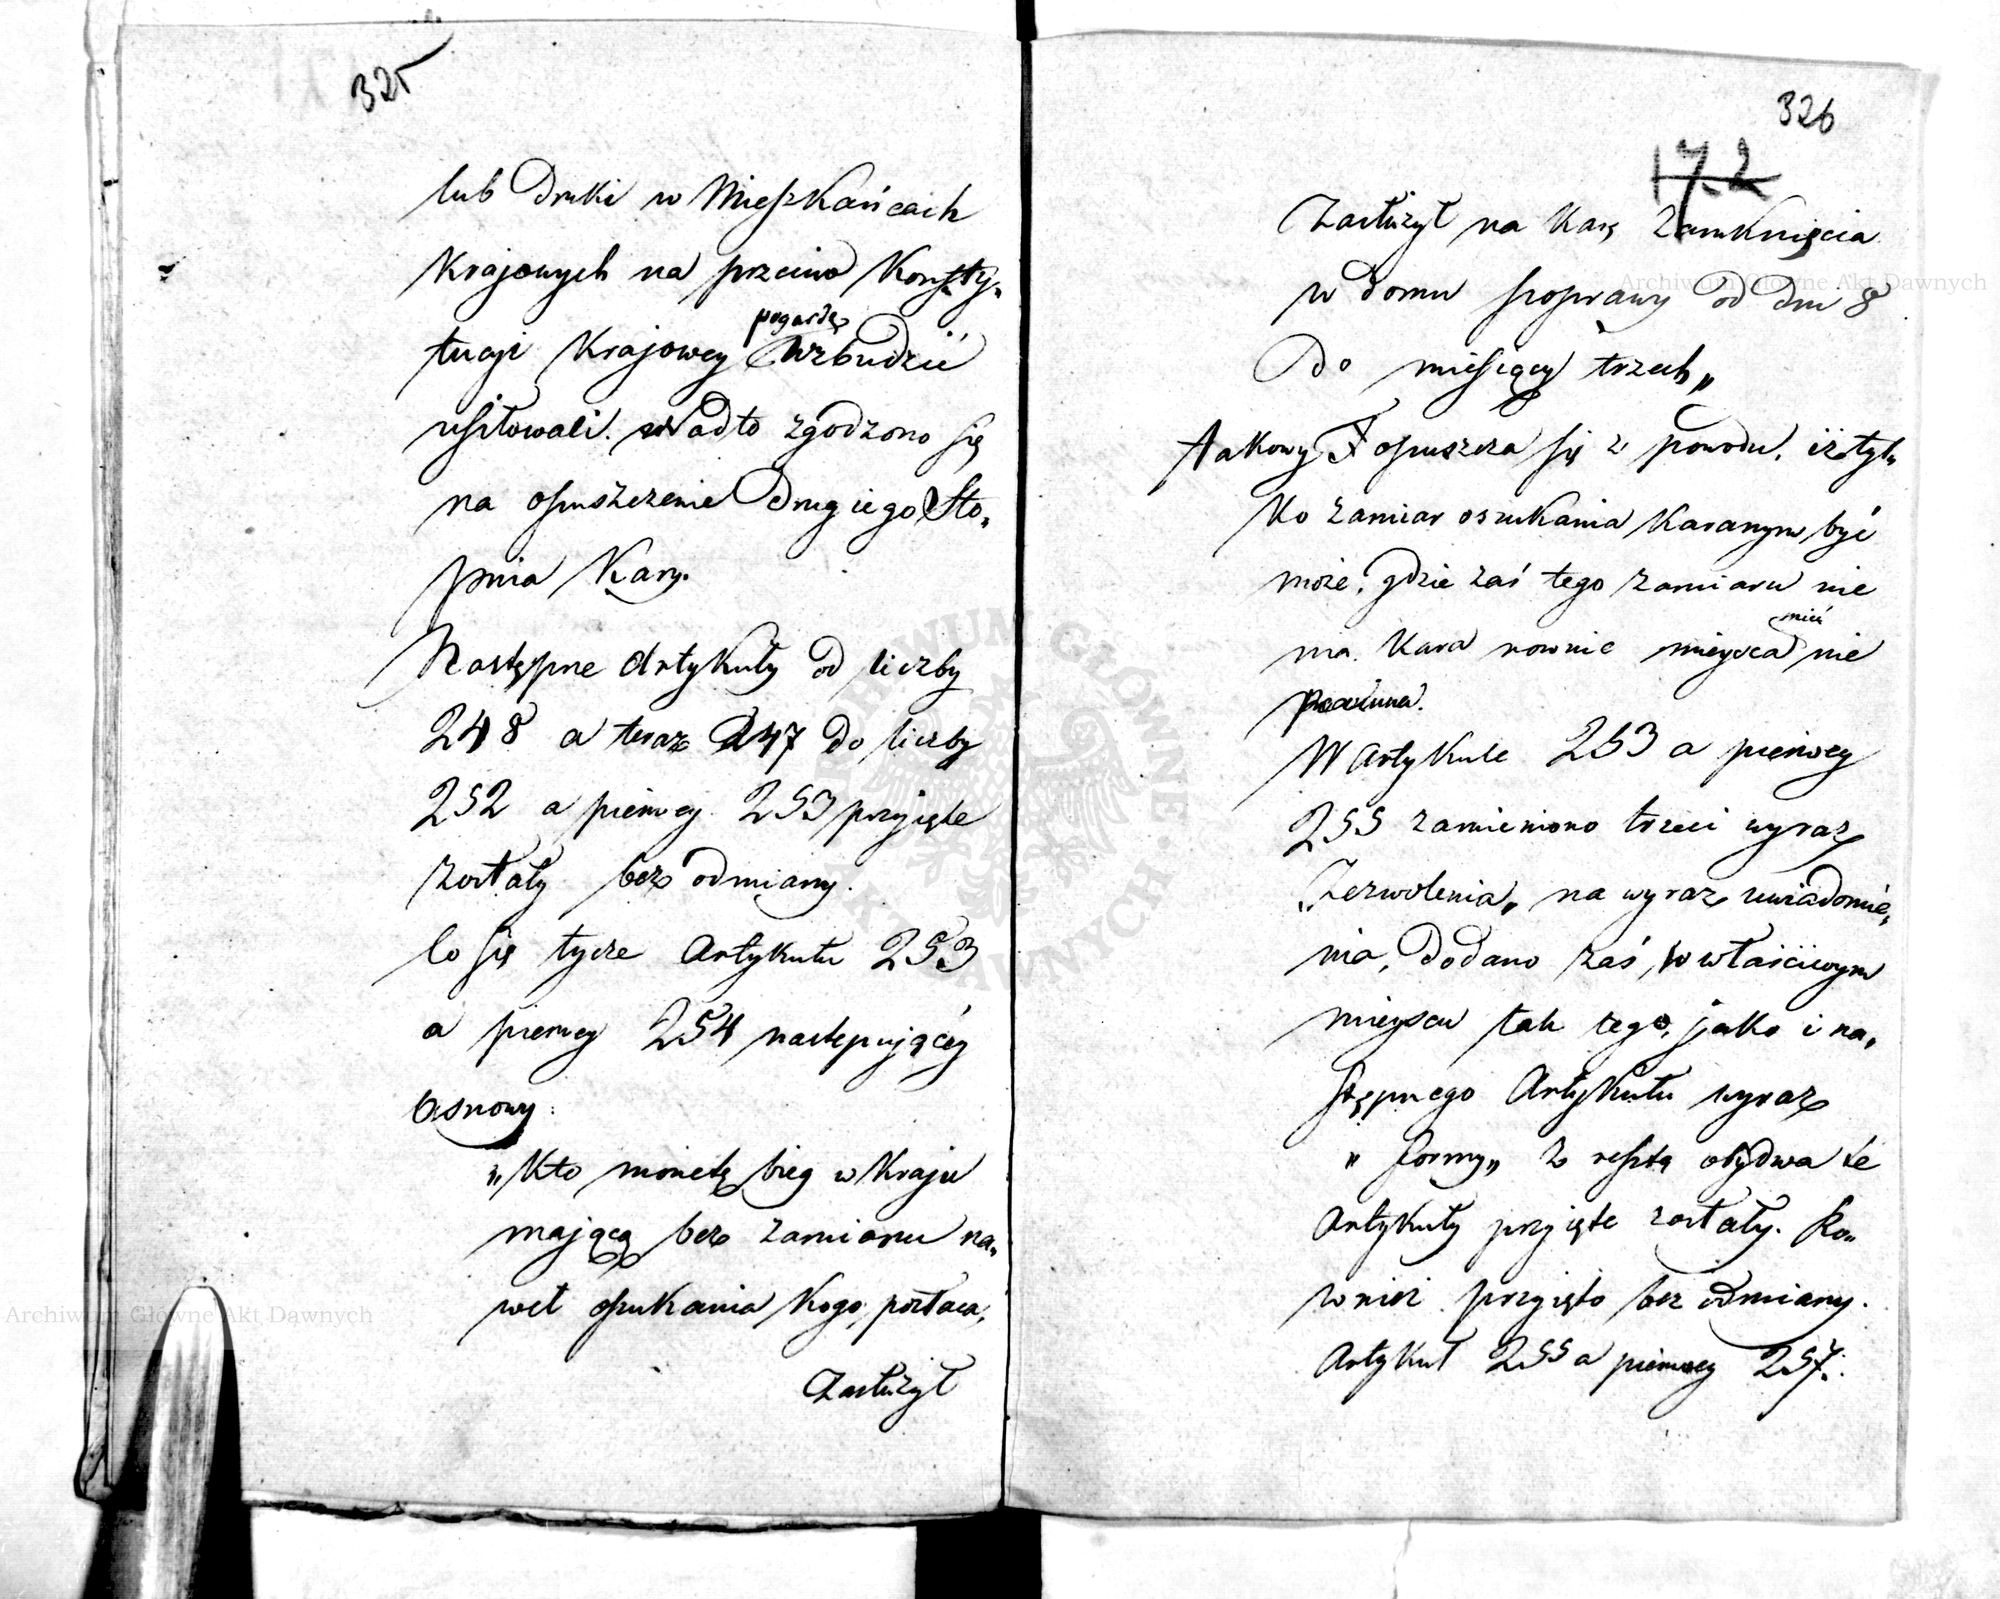 325
lub Druki w Mieszkańcach
Krajowych na przeciw Konsty„
pogardę
tucji Krajowey wzbudzić
usiłowali. Nadto zgodzono się
na opuszczenie Drugiego Sto„
pnia Kary.
Następne Artykuły od liczby
248 a teraz 247 do liczby
252 a pierwej 253 przyięte
zostały bez odmiany.
Co się tycze Artykułu 253
a pierwey 254 następującéy
Osnowy:
„Kto monetę bieg w Kraju
mającą bez zamiaru na„
wet oszukania Kogo, pozłaca,
Zasłużył
326
172
Zasłużył na Karę Zamknięcia
w Domu poprawy od dni 8
Do miesięcy trzech„
takowy opuszcza się z powodu, iż tyl„
ko zamiar oszukania Karanym być
może, gdzie zaś tego zamiaru nie
mieć
ma. Kara rownie mieysca nie
powinna.
W Artykule 253 a pierwey
255 zamieniono trzeci wyraz
„Zezwolenia„ na wyraz uwiadomie„
nia, Dodano zaś, w właściwym
mieyscu tak tego, jako i na„
stępnego Artykułu wyraz
„formy„ z resztą obydwa te
Artykuły przyięte zostały. Ro„
wnież przyięto bez odmiany.
Artykuł 255 a pierwey 257.
Archiwum Główne Akt Dawnych
Archiwum Główne Akt Dawnych
ARCHIWUM GŁÓWNE AKT DAWNYCH